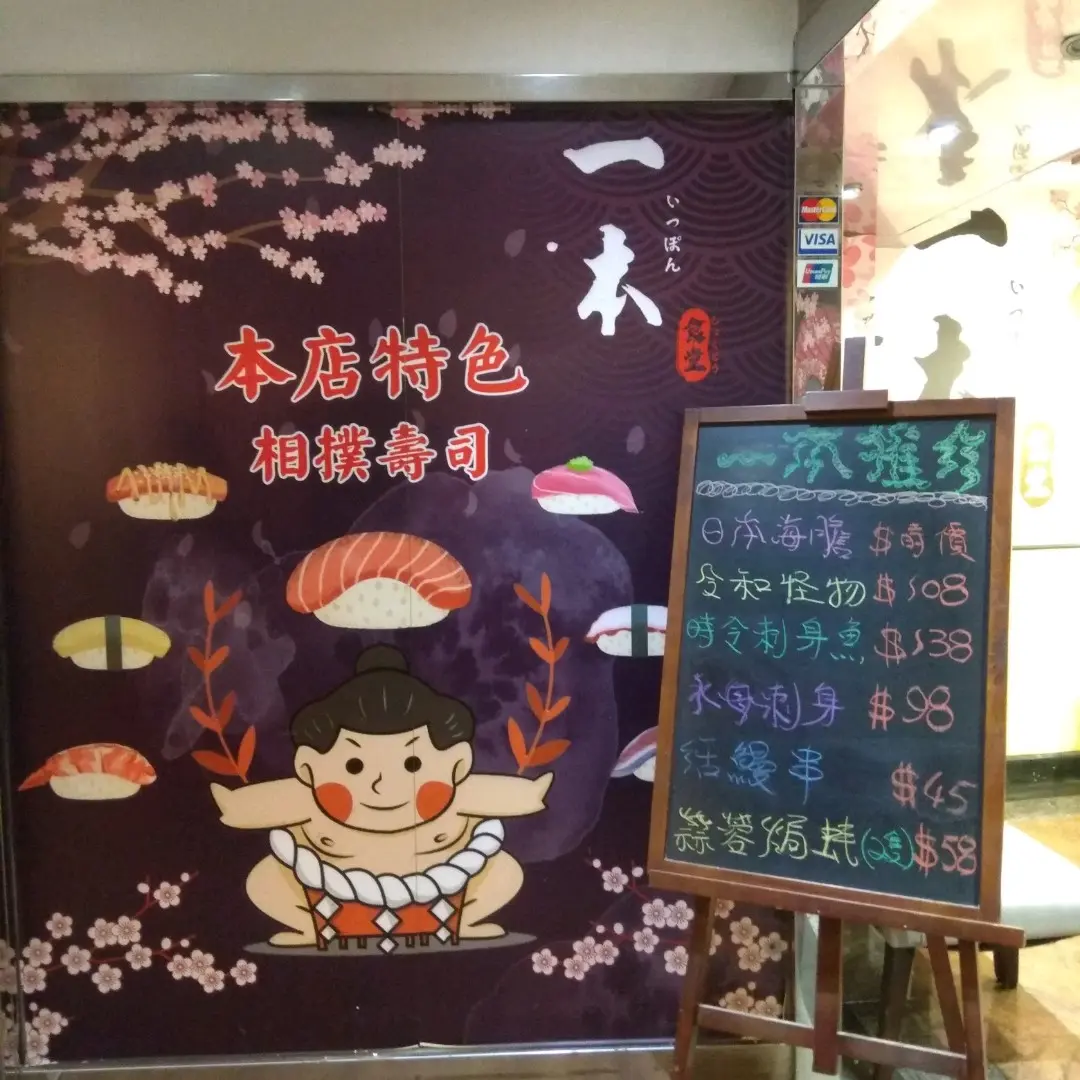 一本
いっぽん
食堂
本店特色
相撲壽司
MasterCard
VISA
UnionPay
一本推介
日本海膽 $時價
令和怪物 $108
時令刺身魚 $138
水母刺身 $98
活鰻串 $45
蒜蓉焗蚝(2隻) $58